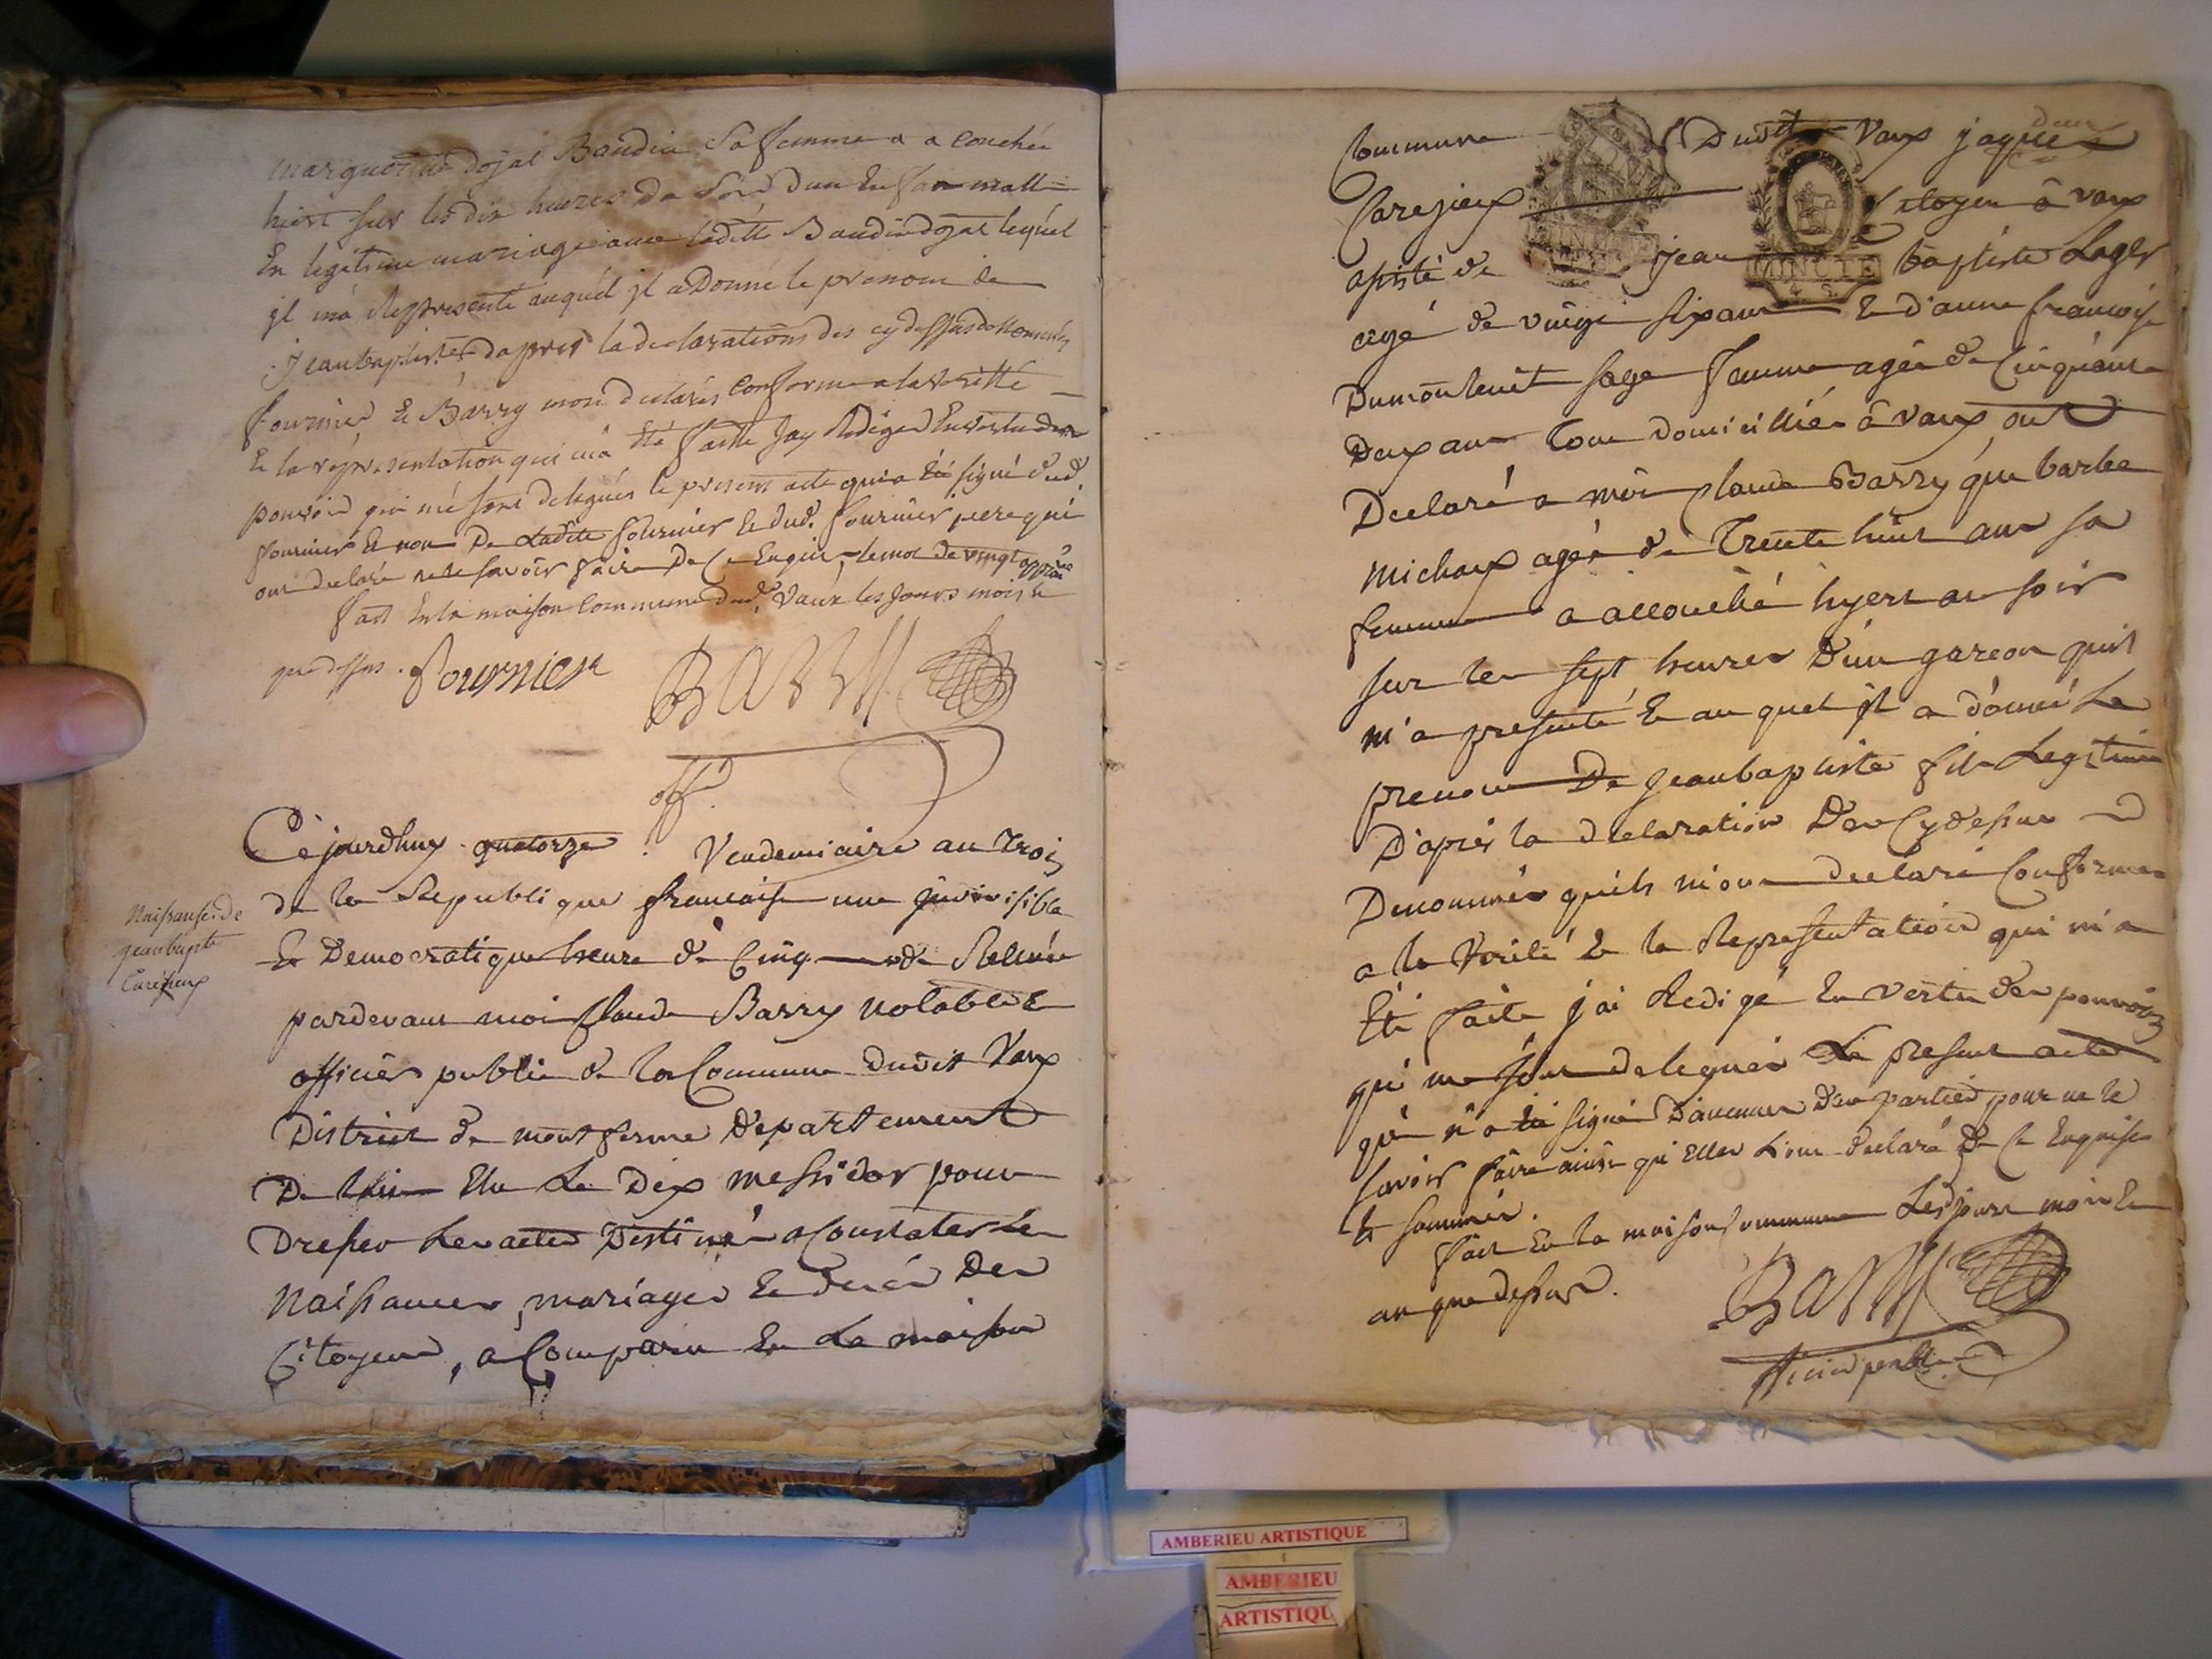 margueritte dojat Baudin Sa femme a a couchée
hiert sur les dix heures du Soir d'un Enfan malle
En legitime mariage avec laditte Baudin dojat lequel
jl ma Represente auquel jl a Donné le prenom de
Jeanbaptiste dapres la declarations des cy dessus denommés
fournier & Barry mon declarés conforme a la veritté
& la representation qui m'a été faitte Jay Rédiger En vertu des
pouvoir qui me sont delegués le present acte qui a été signé dud.
fournier & non De Ladite fournier & dud. fournier pere qui
ont declaré ne le savoir faire De Ce Enquis, le mot de vingt approuvé
fait En la maison Commune dud. Vaux les Jours mois &
que dessus. fournier Barry
off.
Ce jourdhuy quatorze Vendemiaire an trois
de la Republique francaise une jndivisible
& Democratique heure de Cinq de Relevée
Naissance de
jeanbapte
Carejieux
pardevant moi Claude Barry notable &
officier public de la Commune dudit Vaux
District de montferme Departement
De lain Elu Le Dix messidor pour
Dresser Les actes Destinés a Constater Les
Naissances, mariages & decés Des
Citoyens, a Comparu En La maison
Commune Dudit Vaux jaques
Carejieux Citoyen à vaux
MINUTE
MINUTE
4 S.
assisté de jean baptiste Loger
agé de vingt six ans & d'anne francoise
Dumontenit sage femme agée de Cinquante
Deux ans tous domicilliés à vaux ont
Declaré a moi Claude Barry que barbe
Michaux agée de Trente huit ans sa
femme a accouché hyert au soir
sur les sept heures D'un garcon quil
m'a presenté & au quel jl a donné Le
prenom De Jeanbaptiste fils Legitime
D'après la declaration Des Cy dessus
Denommés quils m'ont declaré Conforme
a la Vérité & la Representation qui m'a
Eté faite j'ai Redigé En vertu des pouvoirs
qui me sont delegués Le present acte
qui n'a été signé D'aucunes des parties pour ne le
savoir faire ainsi qu'elles L'ont declaré De Ce Enquises
& sommés.
fait En la maison Commune Les jours mois &
an que dessus.
Barry
officier public
AMBERIEU ARTISTIQUE
AMBERIEU
ARTISTIQU